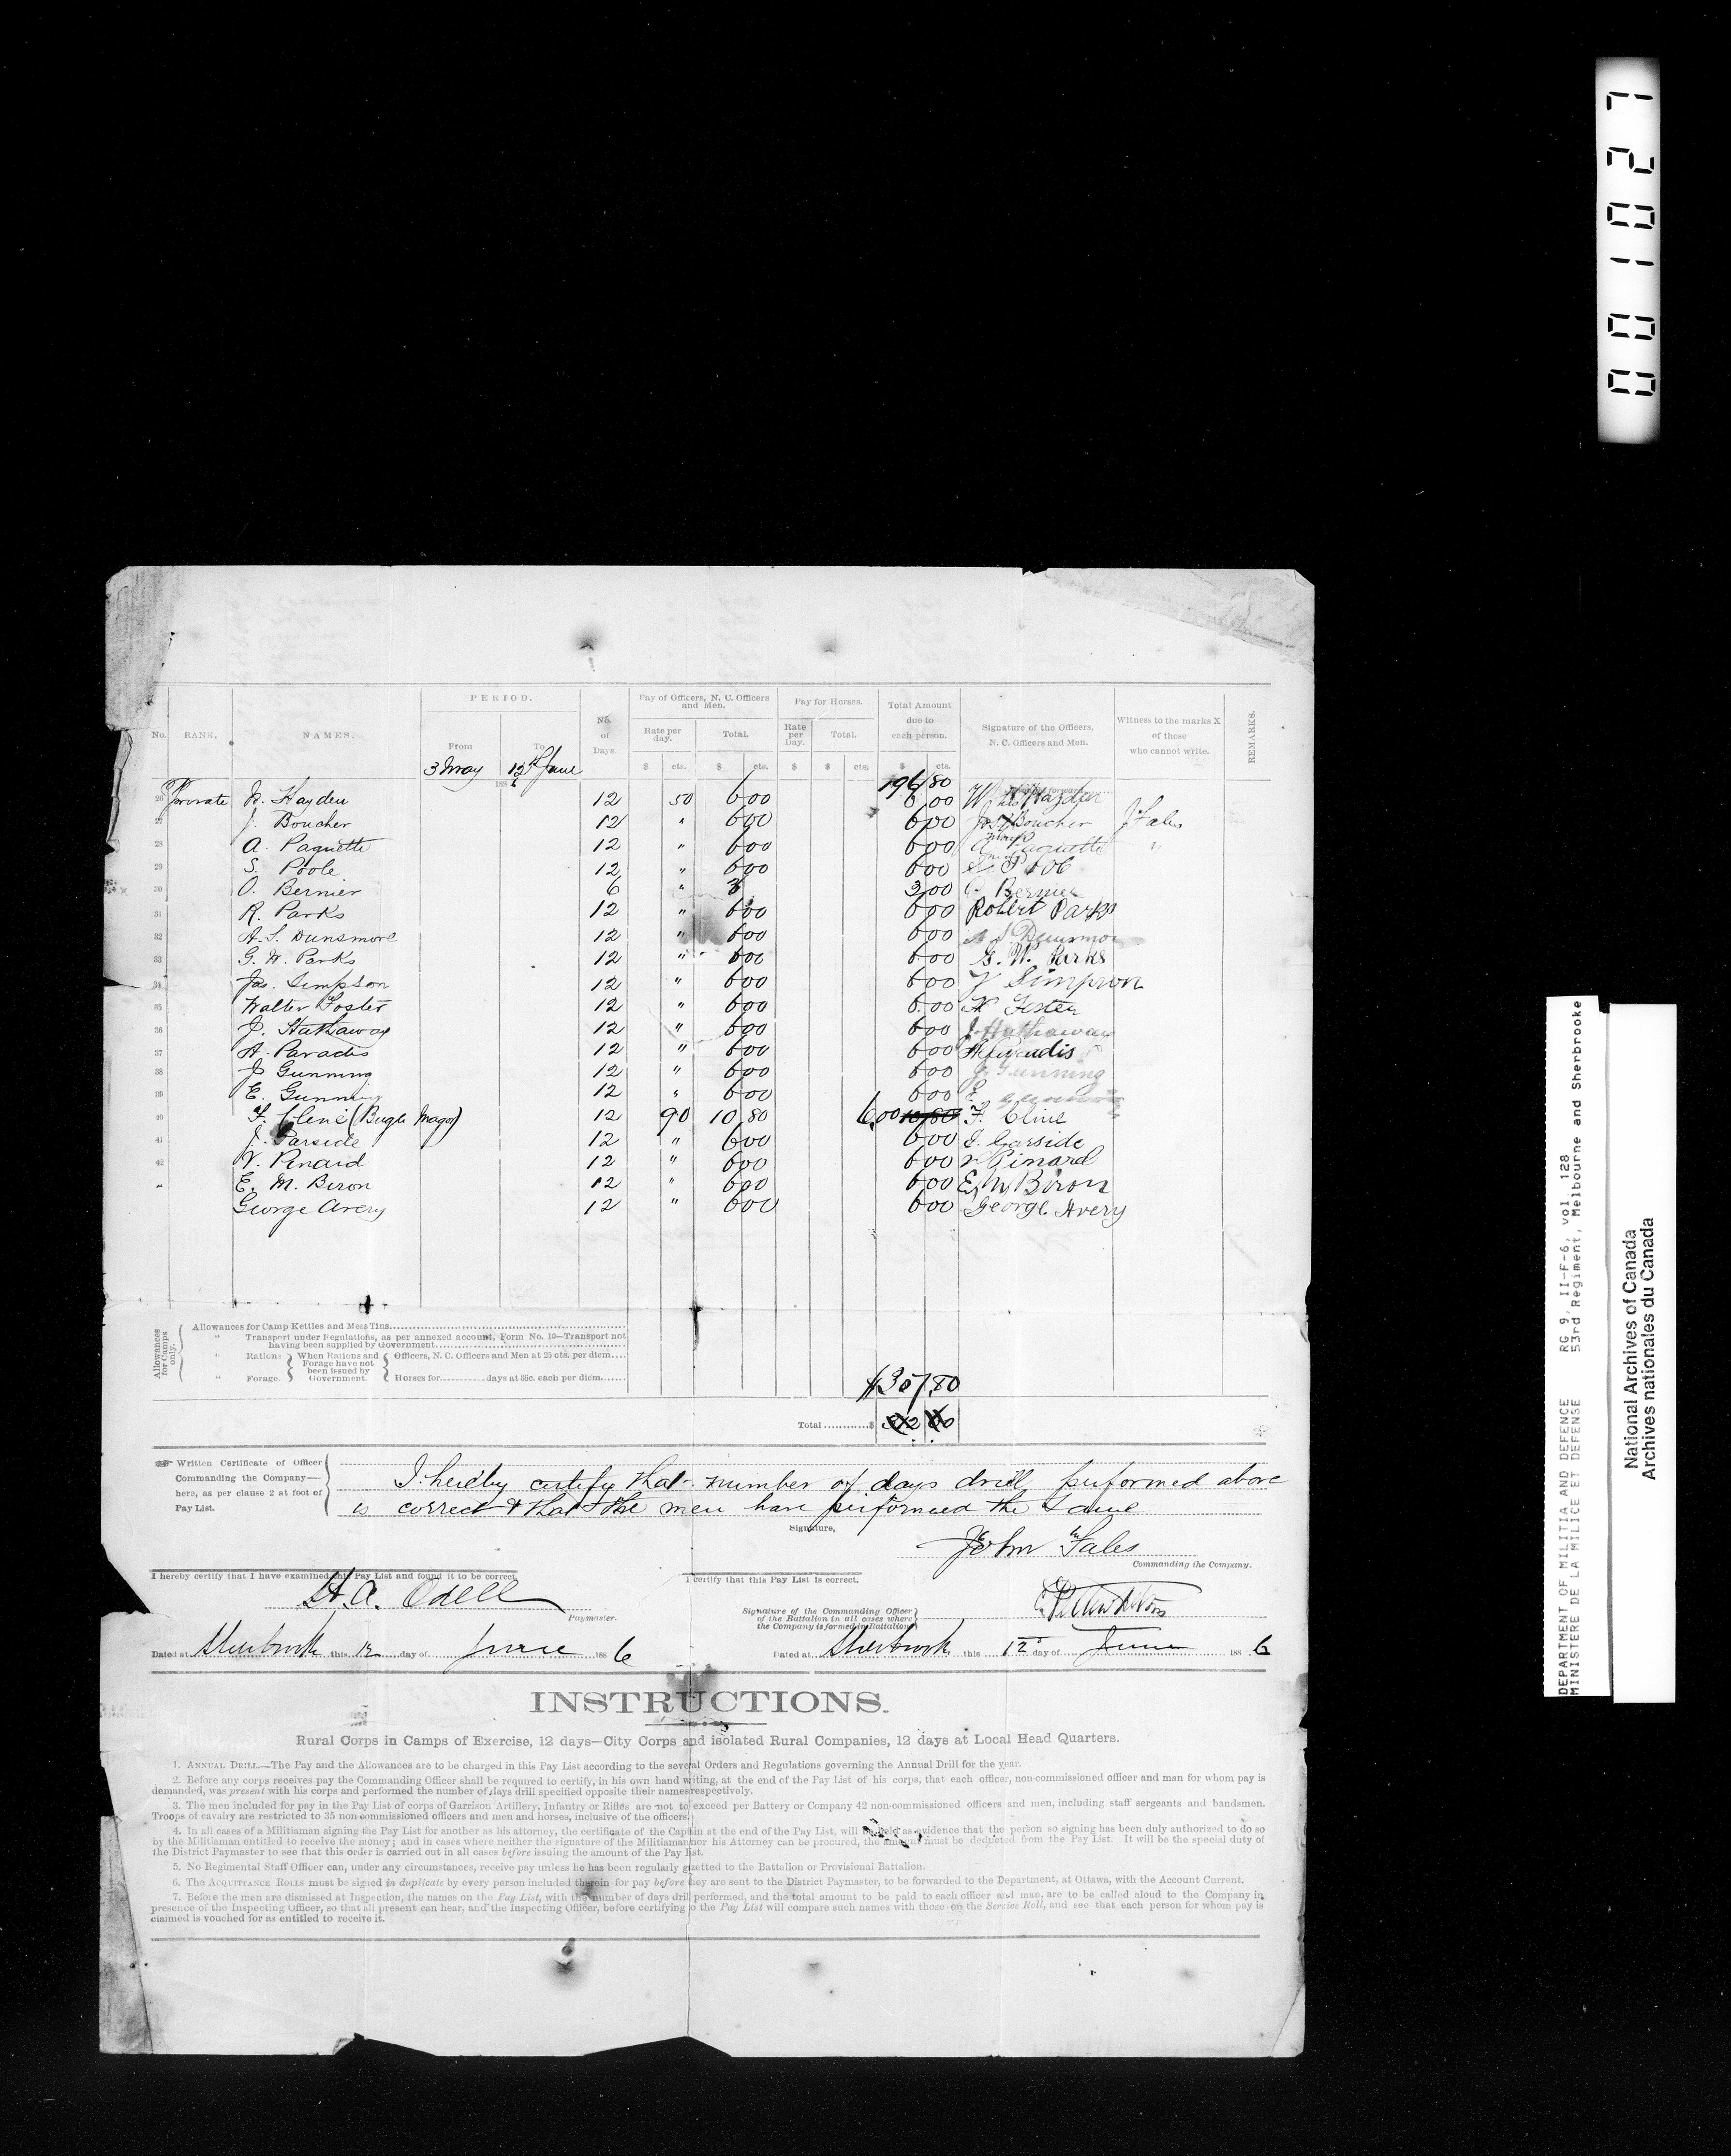 001027
PERIOD.
Pay of Officers, N. C. Officers and Men.
Pay for Horses.
Total Amount due to each person.
No. RANK. NAMES. From To No. of Days. Rate per day. Total. Rate per Day. Total. Signature of the Officers, N. C. Officers and Men. Witness to the marks X of those who cannot write. REMARKS.
3 May 12th June
$ cts. $ cts. $ $ cts $ cts.
196 80
26 Private Hayden 12 50 600 600 W Hayden
27 J. Boucher 12 " 600 600 Jos X Boucher J Fales
28 A. Paquette 12 " 600 600 A Paquette "
29 S. Poole 12 " 600 600
30 O. Bernier 6 " 3 300 Bernier
31 R. Parks 12 " 600 600 Robert Parks
32 A. S. Dunsmore 12 " 600 600 A S Dunsmor
33 G. W. Parks 12 " 600 600 G. W. Parks
34 Jas. Simpson 12 " 600 600 J Simpson
35 Walter Foster 12 " 600 600 Foster
36 J. Hathaway 12 " 600 600 J. Hathaway
37 A. Paradis 12 " 600 600
38 J Gunning 12 " 600 600 J Gunning
39 E. Gunning 12 " 600 600 E.
40 F. Cline (Bugle Major) 12 90 10 80 600 10 80 F. Cline
41 J. 12 " 600 600 J. Garside
42 V. Pinard 12 " 600 600 V Pinard
" E. M. Biron 12 " 600 600 E M Biron
George Avery 12 " 600 600 George Avery
Allowances for Camps only.
Allowances for Camp Kettles and Mess Tins
" Transport under Regulations, as per annexed account, Form No. 10—Transport not having been supplied by Government
" Rations When Rations and Forage have not been issued by Government. Officers, N. C. Officers and Men at 25 cts. per diem
" Forage. Horses for days at 35c. each per diem
$307.80
Total $
Written Certificate of Officer Commanding the Company—here, as per clause 2 at foot of Pay List.
I hereby certify that number of days drill performed above
is correct & that the men have performed the same
Signature,
John Fales
Commanding the Company.
I hereby certify that I have examined this Pay List and found it to be correct
I certify that this Pay List is correct.
H. A. Odell
Paymaster.
Signature of the Commanding Officer of the Battalion in all cases where the Company is formed in Battalion
Dated at Sherbrooke this 12 day of June 1886
Dated at Sherbrook this 12 day of June 1886
INSTRUCTIONS.
Rural Corps in Camps of Exercise, 12 days—City Corps and isolated Rural Companies, 12 days at Local Head Quarters.
1. ANNUAL DRILL—The Pay and the Allowances are to be charged in this Pay List according to the several Orders and Regulations governing the Annual Drill for the year.
2. Before any corps receives pay the Commanding Officer shall be required to certify, in his own hand writing, at the end of the Pay List of his corps, that each officer, non-commissioned officer and man for whom pay is
demanded, was present with his corps and performed the number of days drill specified opposite their names respectively.
3. The men included for pay in the Pay List of corps of Garrison Artillery, Infantry or Rifles are not to exceed per Battery or Company 42 non-commissioned officers and men, including staff sergeants and bandsmen.
Troops of cavalry are restricted to 35 non-commissioned officers and men and horses, inclusive of the officers.
4. In all cases of a Militiaman signing the Pay List for another as his attorney, the certificate of the Captain at the end of the Pay List, will be held as evidence that the person so signing has been duly authorized to do so
by the Militiaman entitled to receive the money; and in cases where neither the signature of the Militiaman nor his Attorney can be procured, the amount must be deducted from the Pay List. It will be the special duty of
the District Paymaster to see that this order is carried out in all cases before issuing the amount of the Pay list.
5. No Regimental Staff Officer can, under any circumstances, receive pay unless he has been regularly gazetted to the Battalion or Provisional Battalion.
6. The ACQUITTANCE ROLLS must be signed in duplicate by every person included therein for pay before they are sent to the District Paymaster, to be forwarded to the Department, at Ottawa, with the Account Current.
7. Before the men are dismissed at Inspection, the names on the Pay List, with the number of days drill performed, and the total amount to be paid to each officer and man, are to be called aloud to the Company in
presence of the Inspecting Officer, so that all present can hear, and the Inspecting Officer, before certifying to the Pay List will compare such names with those on the Service Roll, and see that each person for whom pay is
claimed is vouched for as entitled to receive it.
DEPARTMENT OF MILITIA AND DEFENCE RG 9, II-F-6, vol. 128
MINISTERE DE LA MILICE ET DEFENSE 53rd Regiment, Melbourne and Sherbrooke
National Archives of Canada
Archives nationales du Canada